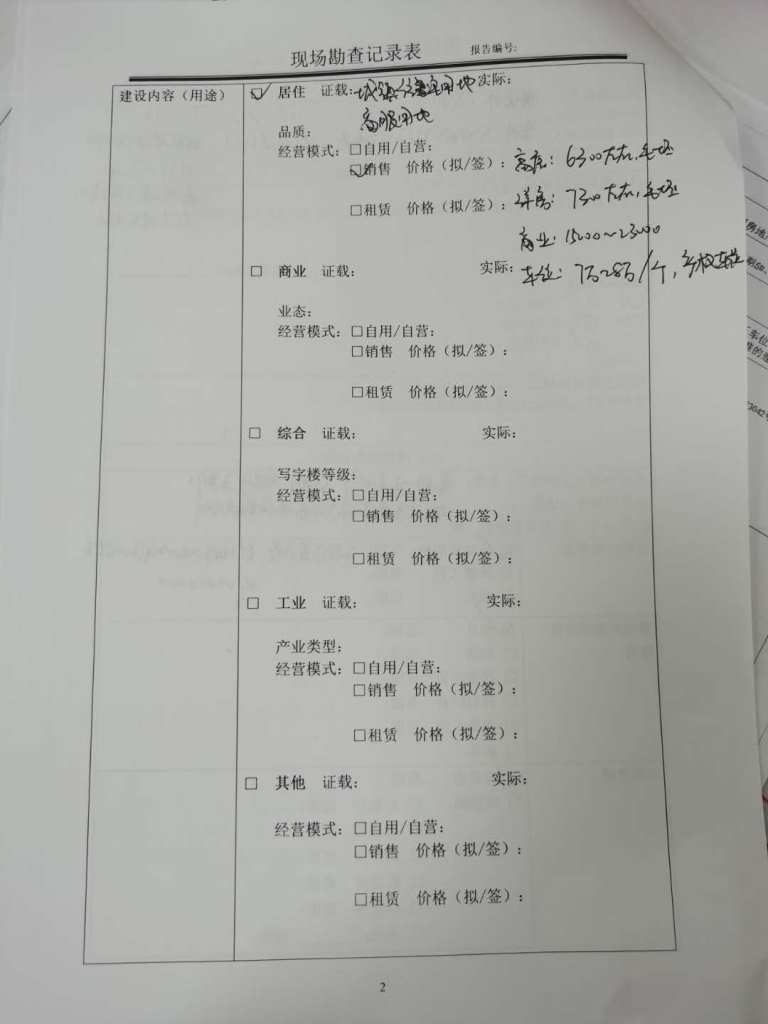 现场勘查记录表 报告编号:
建设内容（用途） ☑ 居住 证载: 城镇住宅用地 实际:
商服用地
品质:
经营模式: □自用/自营:
☑销售 价格（拟/签）: 高层: 6300左右, 毛坯
□租赁 价格（拟/签）: 洋房: 7300左右, 毛坯
商业: 15000~23000
□ 商业 证载: 实际: 车位: 7万~8万/个, 产权车位
业态:
经营模式: □自用/自营:
□销售 价格（拟/签）:
□租赁 价格（拟/签）:
□ 综合 证载: 实际:
写字楼等级:
经营模式: □自用/自营:
□销售 价格（拟/签）:
□租赁 价格（拟/签）:
□ 工业 证载: 实际:
产业类型:
经营模式: □自用/自营:
□销售 价格（拟/签）:
□租赁 价格（拟/签）:
□ 其他 证载: 实际:
经营模式: □自用/自营:
□销售 价格（拟/签）:
□租赁 价格（拟/签）:
2